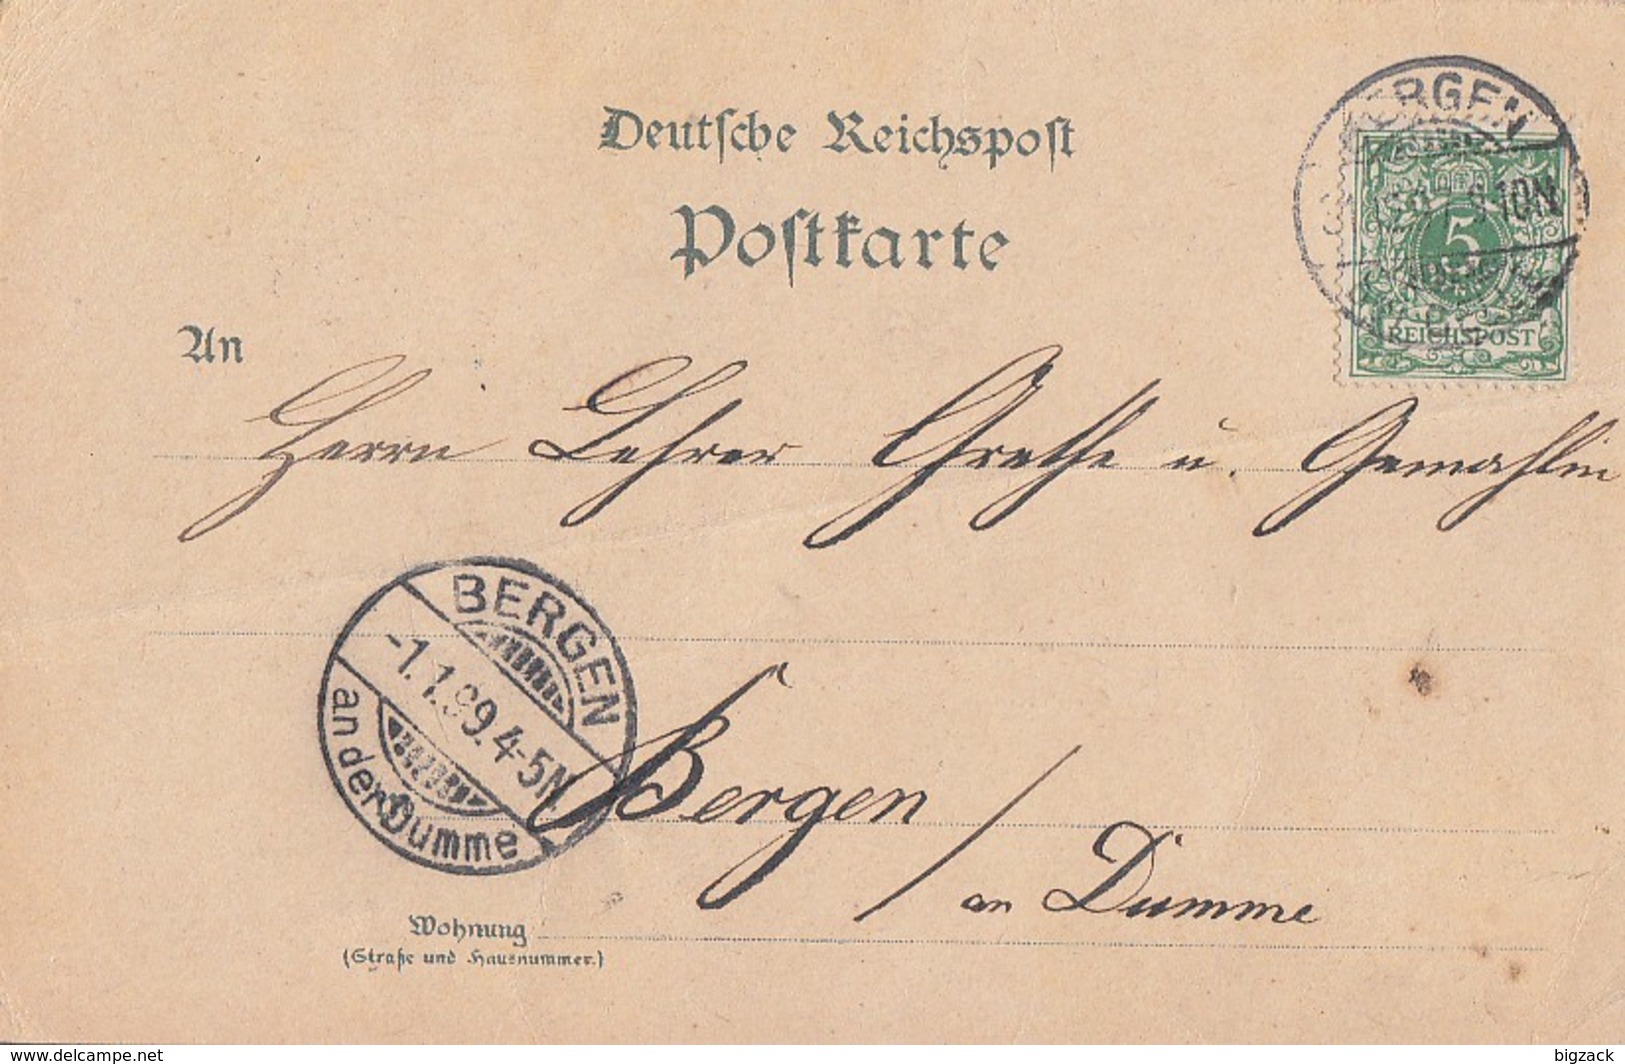 Deutsche Reichspost
Postkarte
BERGEN
10N
5
REICHSPOST
An
Herrn Lehrer Grethe u. Gemahlin
BERGEN
-1.1.99.4-5N
an der Dumme
Bergen / an Dumme
Wohnung
(Straße und Hausnummer.)
delcampe.net
bigzack